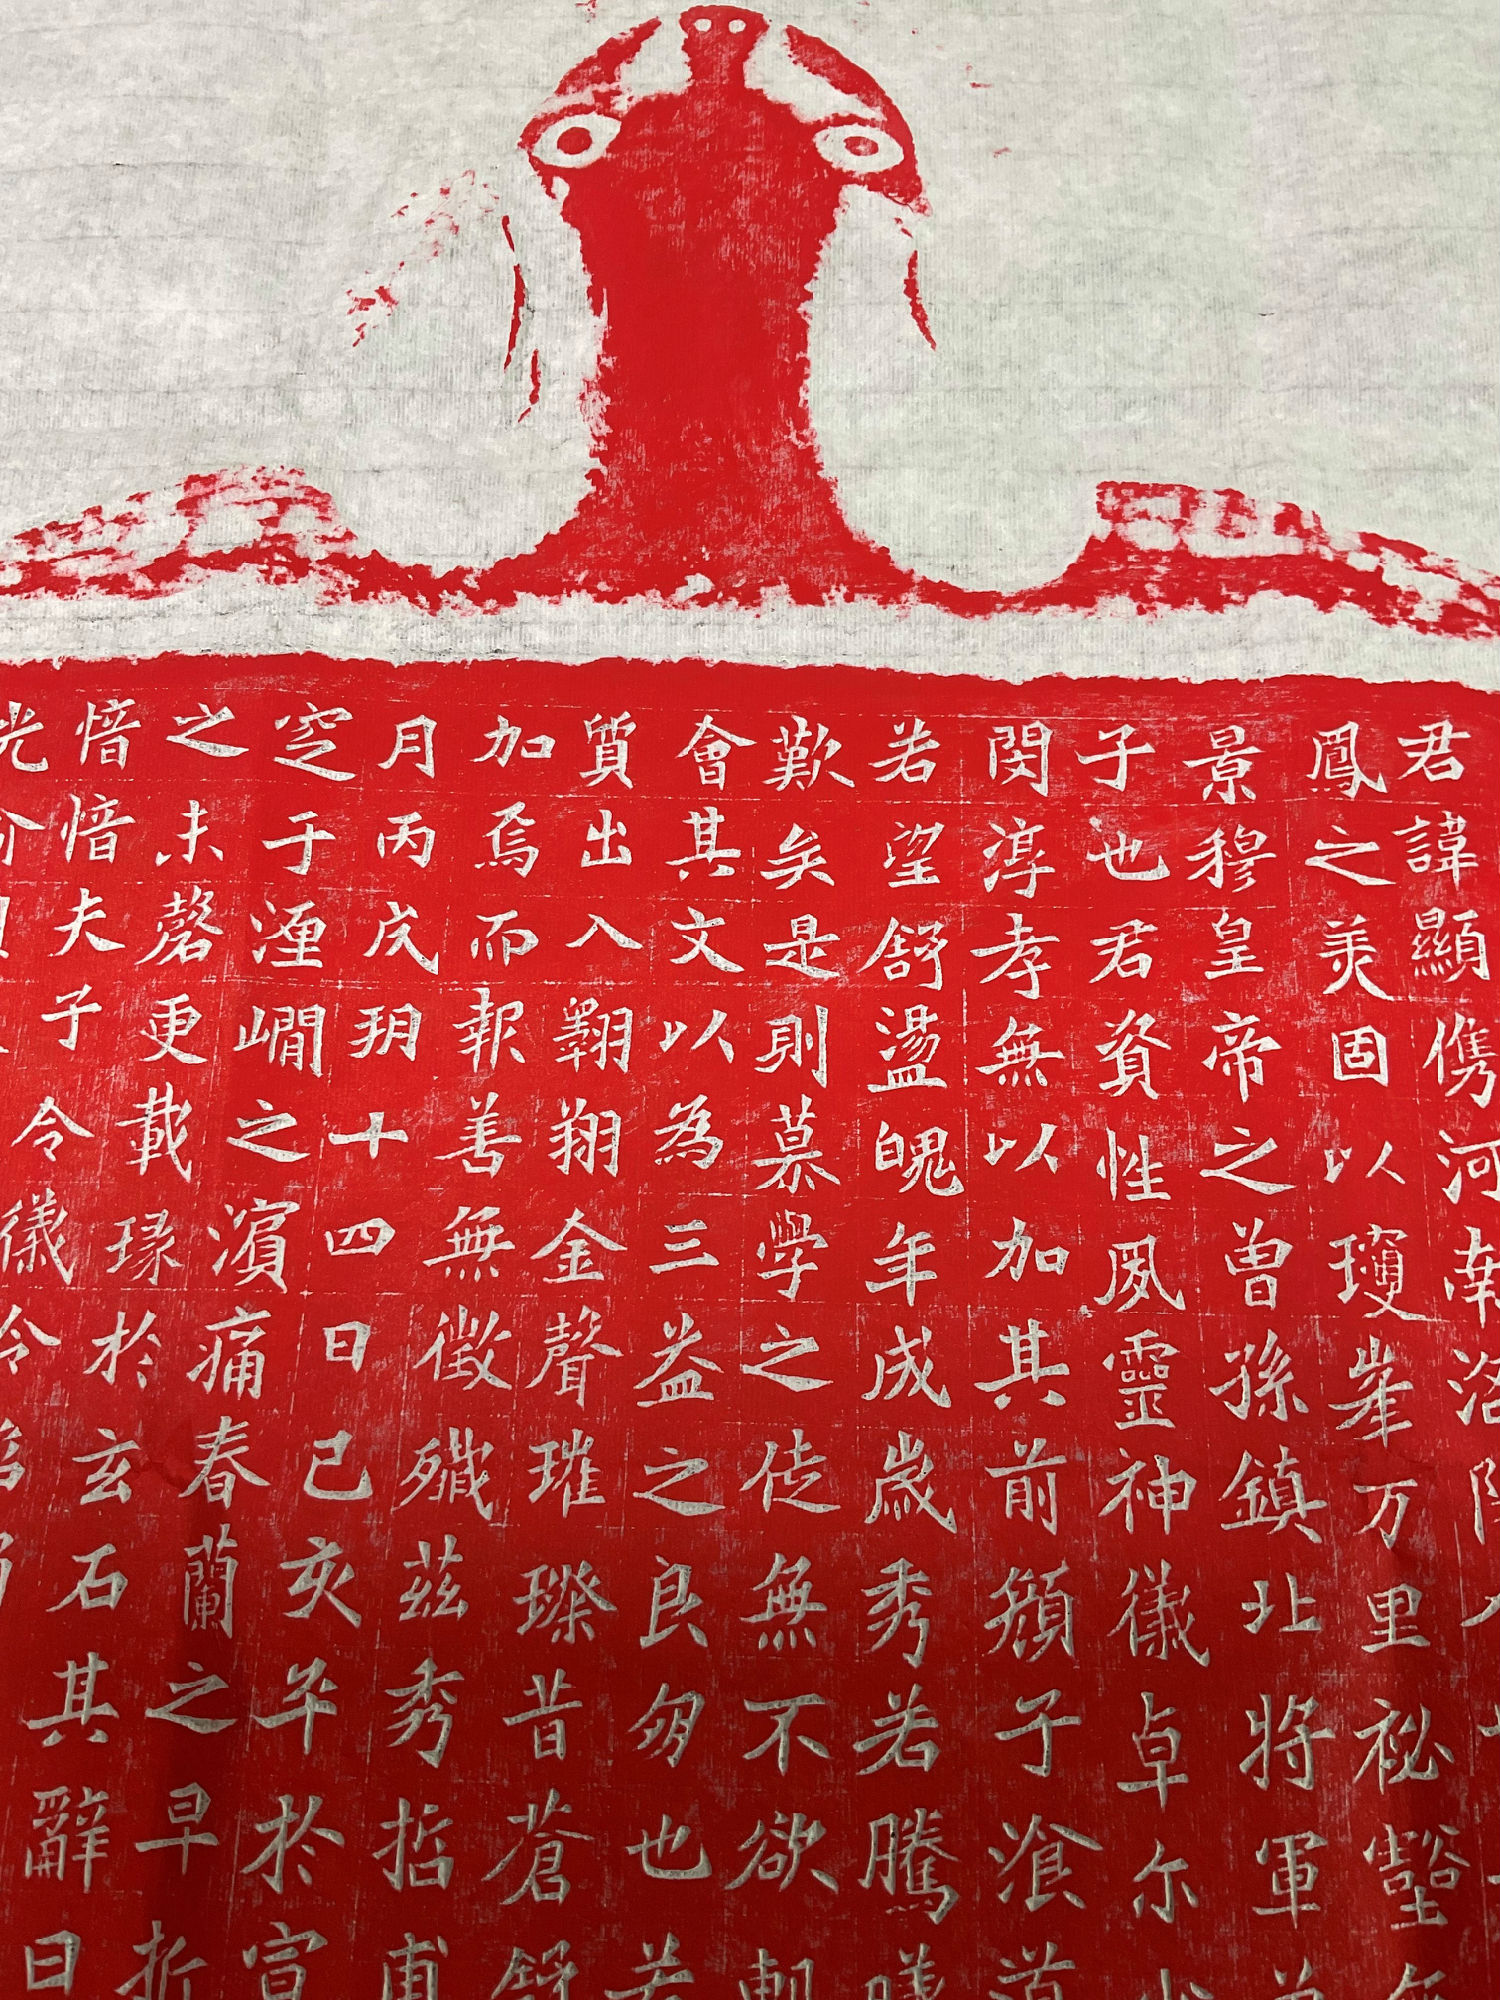 君諱顯儁河南洛陽人
鳳之美固以瓊峯万里祕壑無
景穆皇帝之曾孫鎮北將軍
子也君資性夙靈神儀卓尔少
閔淳孝無以加其前顏子湌道
若望舒盪魄年成歲秀若騰曦
歎矣是則慕學之徒無不欲軔
會其文以為三益之良朋也若
質出入翱翔金聲璀璨昔蒼舒
加焉而報善無徵殲茲秀哲甫
月丙戌朔十四日己亥卒於宣
窆于瀍澗之濱痛春蘭之早折
之未磬更載琭於玄石其辭曰
愔愔夫子令儀令
光